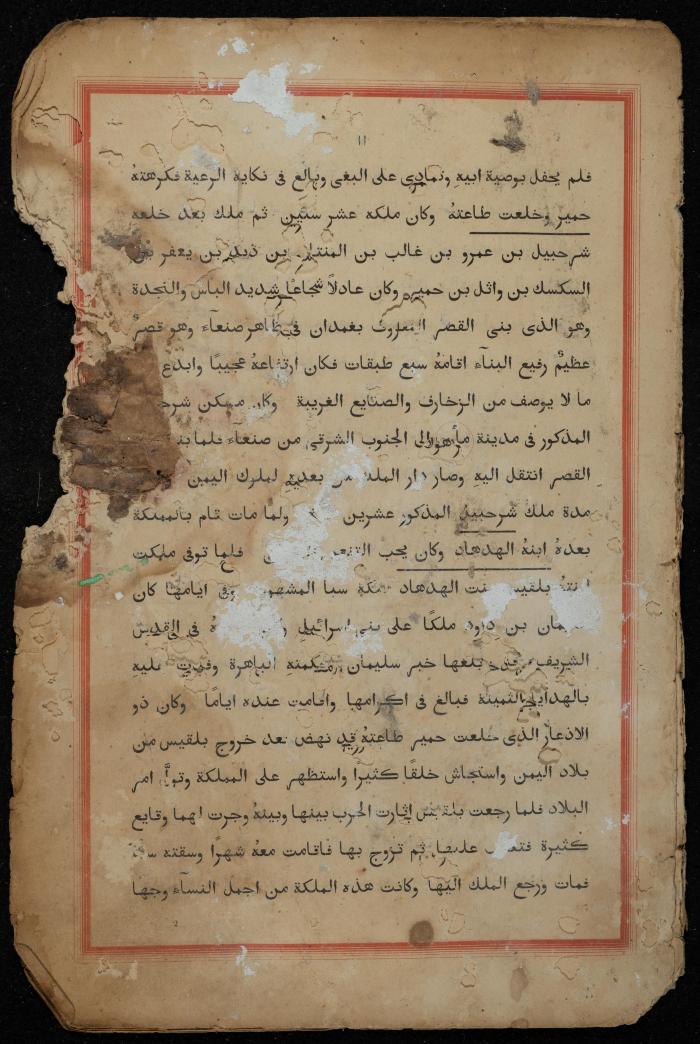 ١١
فلم يحفل بوصية ابيهِ وتمادى على البغى وبالغ فى نكاية الرعية فكرهتهُ
حمير وخلعت طاعتهُ وكان ملكه عشر سنين ثم ملك بعد خلعه
شرحبيل بن عمرو بن غالب بن المنتاب بن زيد بن يعفر بن
السكسك بن واثل بن حمير وكان عادلاً شجاعًا شديد الباس والنجدة
وهو الذى بنى القصر المعروف بغمدان فى ظاهر صنعآء وهو قصرٌ
عظيمٌ رفيع البنآء اقامهُ سبع طبقات فكان ارتفاعهُ عجيبًا وابدع
ما لا يوصف من الزخارف والصنايع الغريبة وكان مسكن
المذكور فى مدينة مأرب الى الجنوب الشرقى من صنعآء فلما
القصر انتقل اليهِ وصار دار الملك من بعدهِ لملوك اليمن
مدة ملك شرحبيل المذكور عشرين ولما مات قام بالمملكة
بعدهُ ابنهُ الهدهاد وكان يحب فلما توفى ملكت
ابنتهُ بلقيس بنت الهدهاد ملكة سبا وفى ايامها كان
سليمان بن داود ملكًا على بنى اسرائيل فى القدس
الشريف بلغها خبر سليمان وحكمتهِ الباهرة وفدت عليهِ
بالهدايا الثمينة فبالغ فى اكرامها واقامت عنده ايامًا وكان ذو
الاذعار الذى خلعت حمير طاعتهُ قد نهض بعد خروج بلقيس من
بلاد اليمن واستجاش خلقًا كثيرًا واستظهر على المملكة وتولَّى امر
البلاد فلما رجعت بلقيس اثارت الحرب بينها وبينهُ وجرت لهما وقايع
كثيرة عليها ثم تزوج بها فاقامت معهُ شهرًا وسقته
فمات ورجع الملك اليها وكانت هذه الملكة من اجمل النسآء وجها